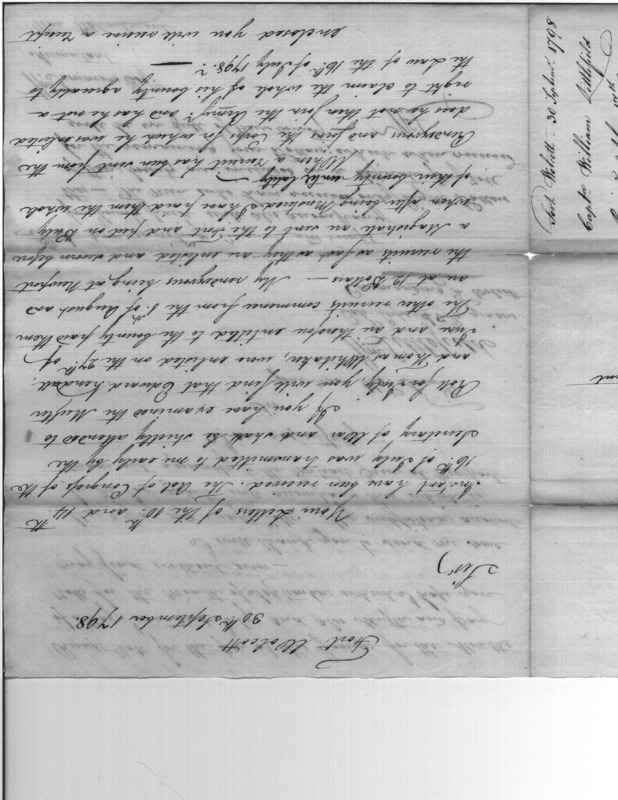 Fort Wolcott
30th September 1798.
Sir,
Your Letters of the 10th and 14th
Instant have been received. The Act of Congress of the
16th of July was transmitted to me early by the
Secretary of War and shall be strictly attended to
If you have examined the Muster
Roll for July, you will find that Edward Kendall,
and Thomas Whitaker, were enlisted on the 27th of
June and are therefore entitled to the bounty paid them
The other recruits commence from the 5. of August and
are at 12 Dollars — My rendezvous being at Newport
the recruits as fast as they are enlisted and sworn before
a Magistrate are sent to the Fort and put on Duty
when after being Mustered I have paid them the whole
of their bounty until lately —
When a recruit has been sent from the
Rendezvous and joins the Corps for which he was enlisted
does he not then join the Army? and has he not a
right to claim the whole of his bounty agreeably to
the Law of the 16th of July 1798? —
enclosed you will receive a receipt
Fort Wolcott — 30 Septem. 1798
Captn William Littlefield